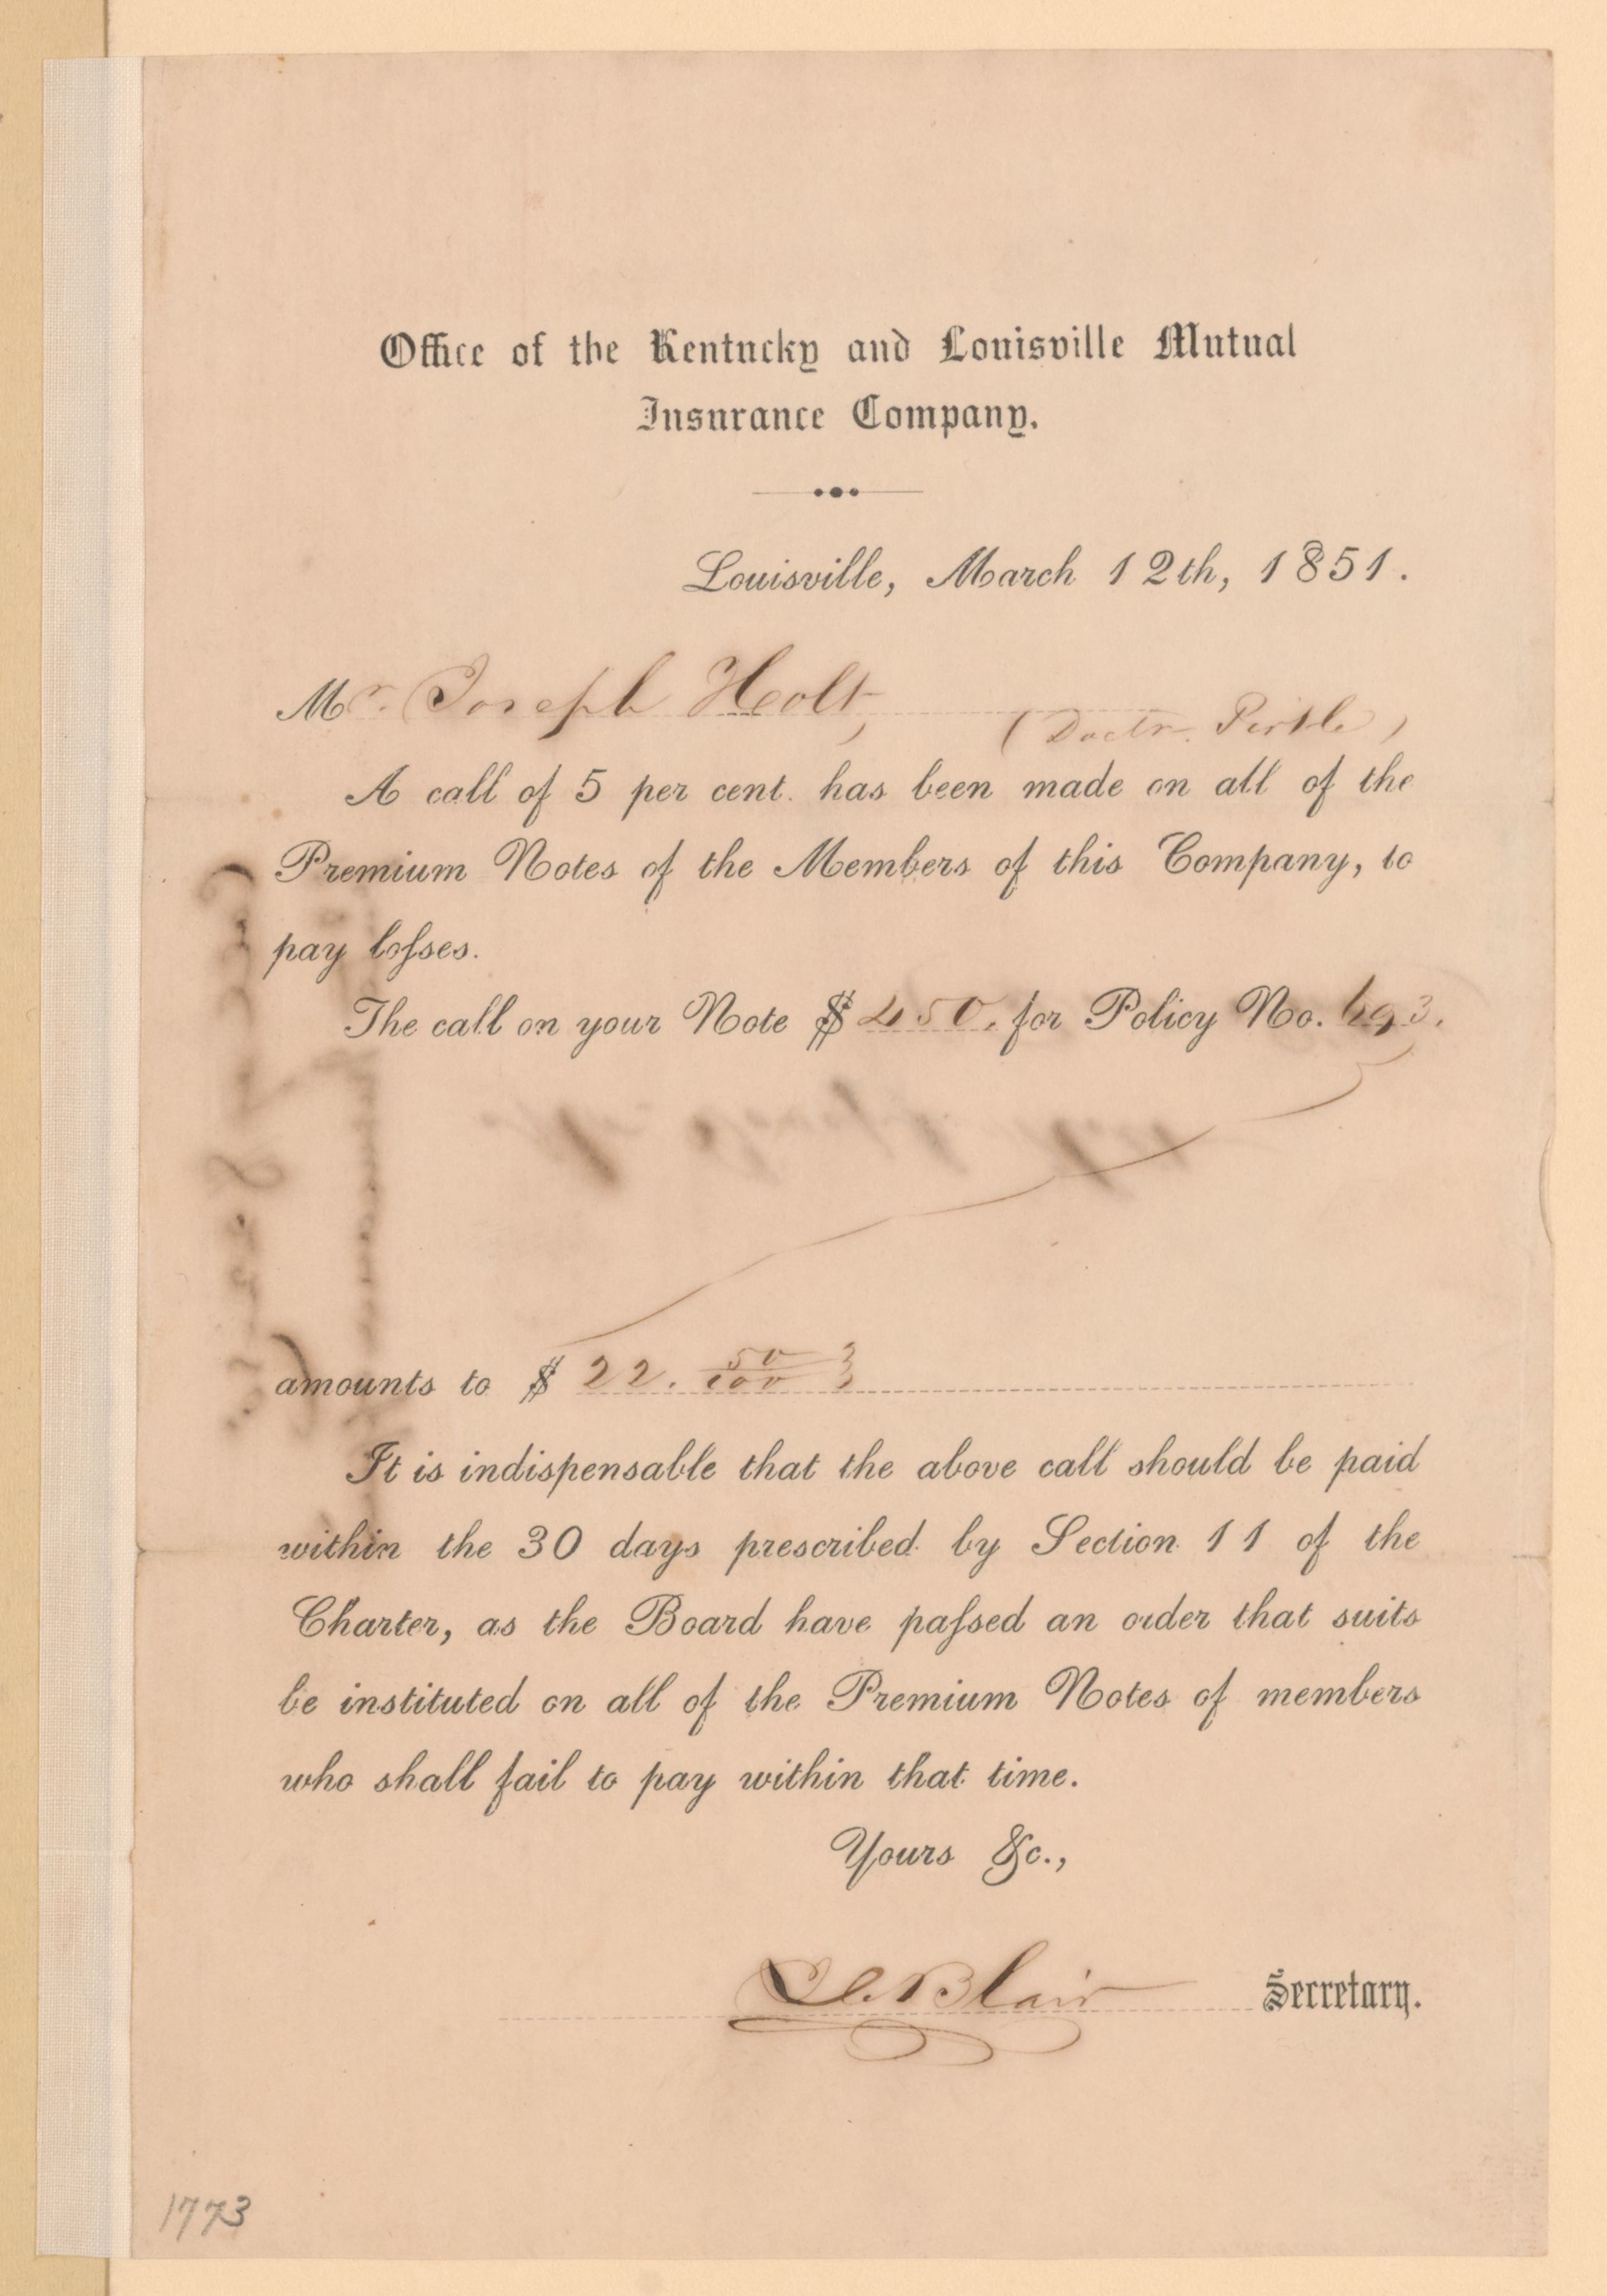 Office of the Kentucky and Louisville Mutual
Insurance Company.
Louisville, March 12th, 1851.
Mr. Joseph Holt,
(Doctr. Pirtle)
A call of 5 per cent. has been made on all of the
Premium Notes of the Members of this Company, to
pay loſses.
The call on your Note $ 450. for Policy No. 693.
amounts to $ 22. 50/100
It is indispensable that the above call should be paid
within the 30 days prescribed by Section 11 of the
Charter, as the Board have paſsed an order that suits
be instituted on all of the Premium Notes of members
who shall fail to pay within that time.
Yours &c.,
Blair Secretary.
1773